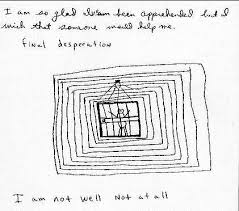 I am so glad I have been apprehended but I
wish that someone would help me.
final desperation
I am not well Not at all